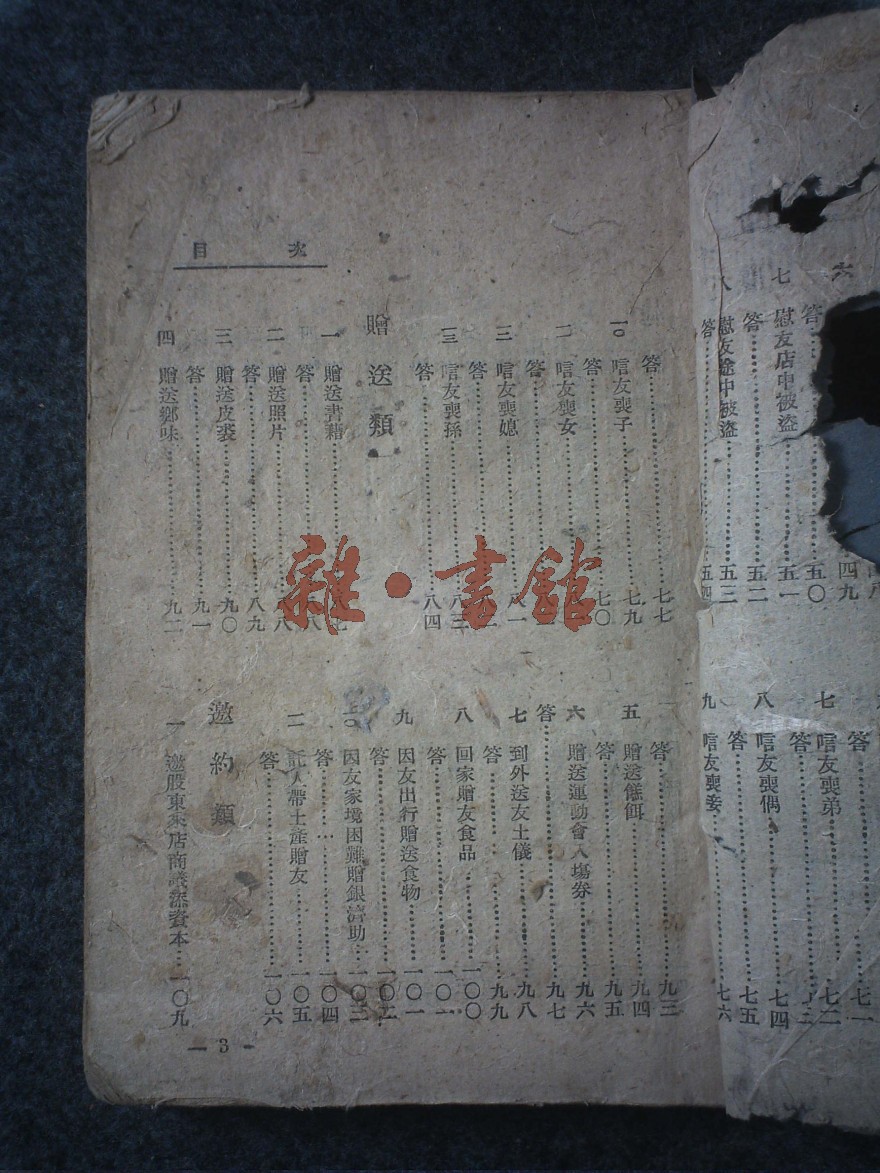 六
四九
答……五〇
七 慰友店中被盜……五一
答……五二
八 慰友途中被盜……五三
答……五四
答……七一
七 唁友喪弟……七二
答……七三
八 唁友喪偶……七四
答……七五
九 唁友喪妾……七六
目次
答……七七
一〇 唁友喪子……七九
答……七〇
唁友喪女……
答……
唁友喪媳……八一
答……
唁友喪孫……八三
答……八四
贈送類
一 贈送書籍……七
答……八
二 贈送照片……八
答……八九
三 贈送皮裘……九〇
答……九一
四 贈送鄉味……九二
答……九三
五 贈送餻餌……九四
答……九五
六 贈送運動會入場券……九六
答……九七
七 到外送友土儀……九八
答……九九
八 回家贈友食品……一〇〇
答……一〇一
九 因友出行贈送食物……一〇一
答……一〇二
一〇 因友家境困難贈銀濟助……一〇三
答……一〇四
託人帶土產贈友……一〇五
答……一〇六
邀約類
一 邀股東來店商議添資本……一〇九
— 3 -
雜·書館